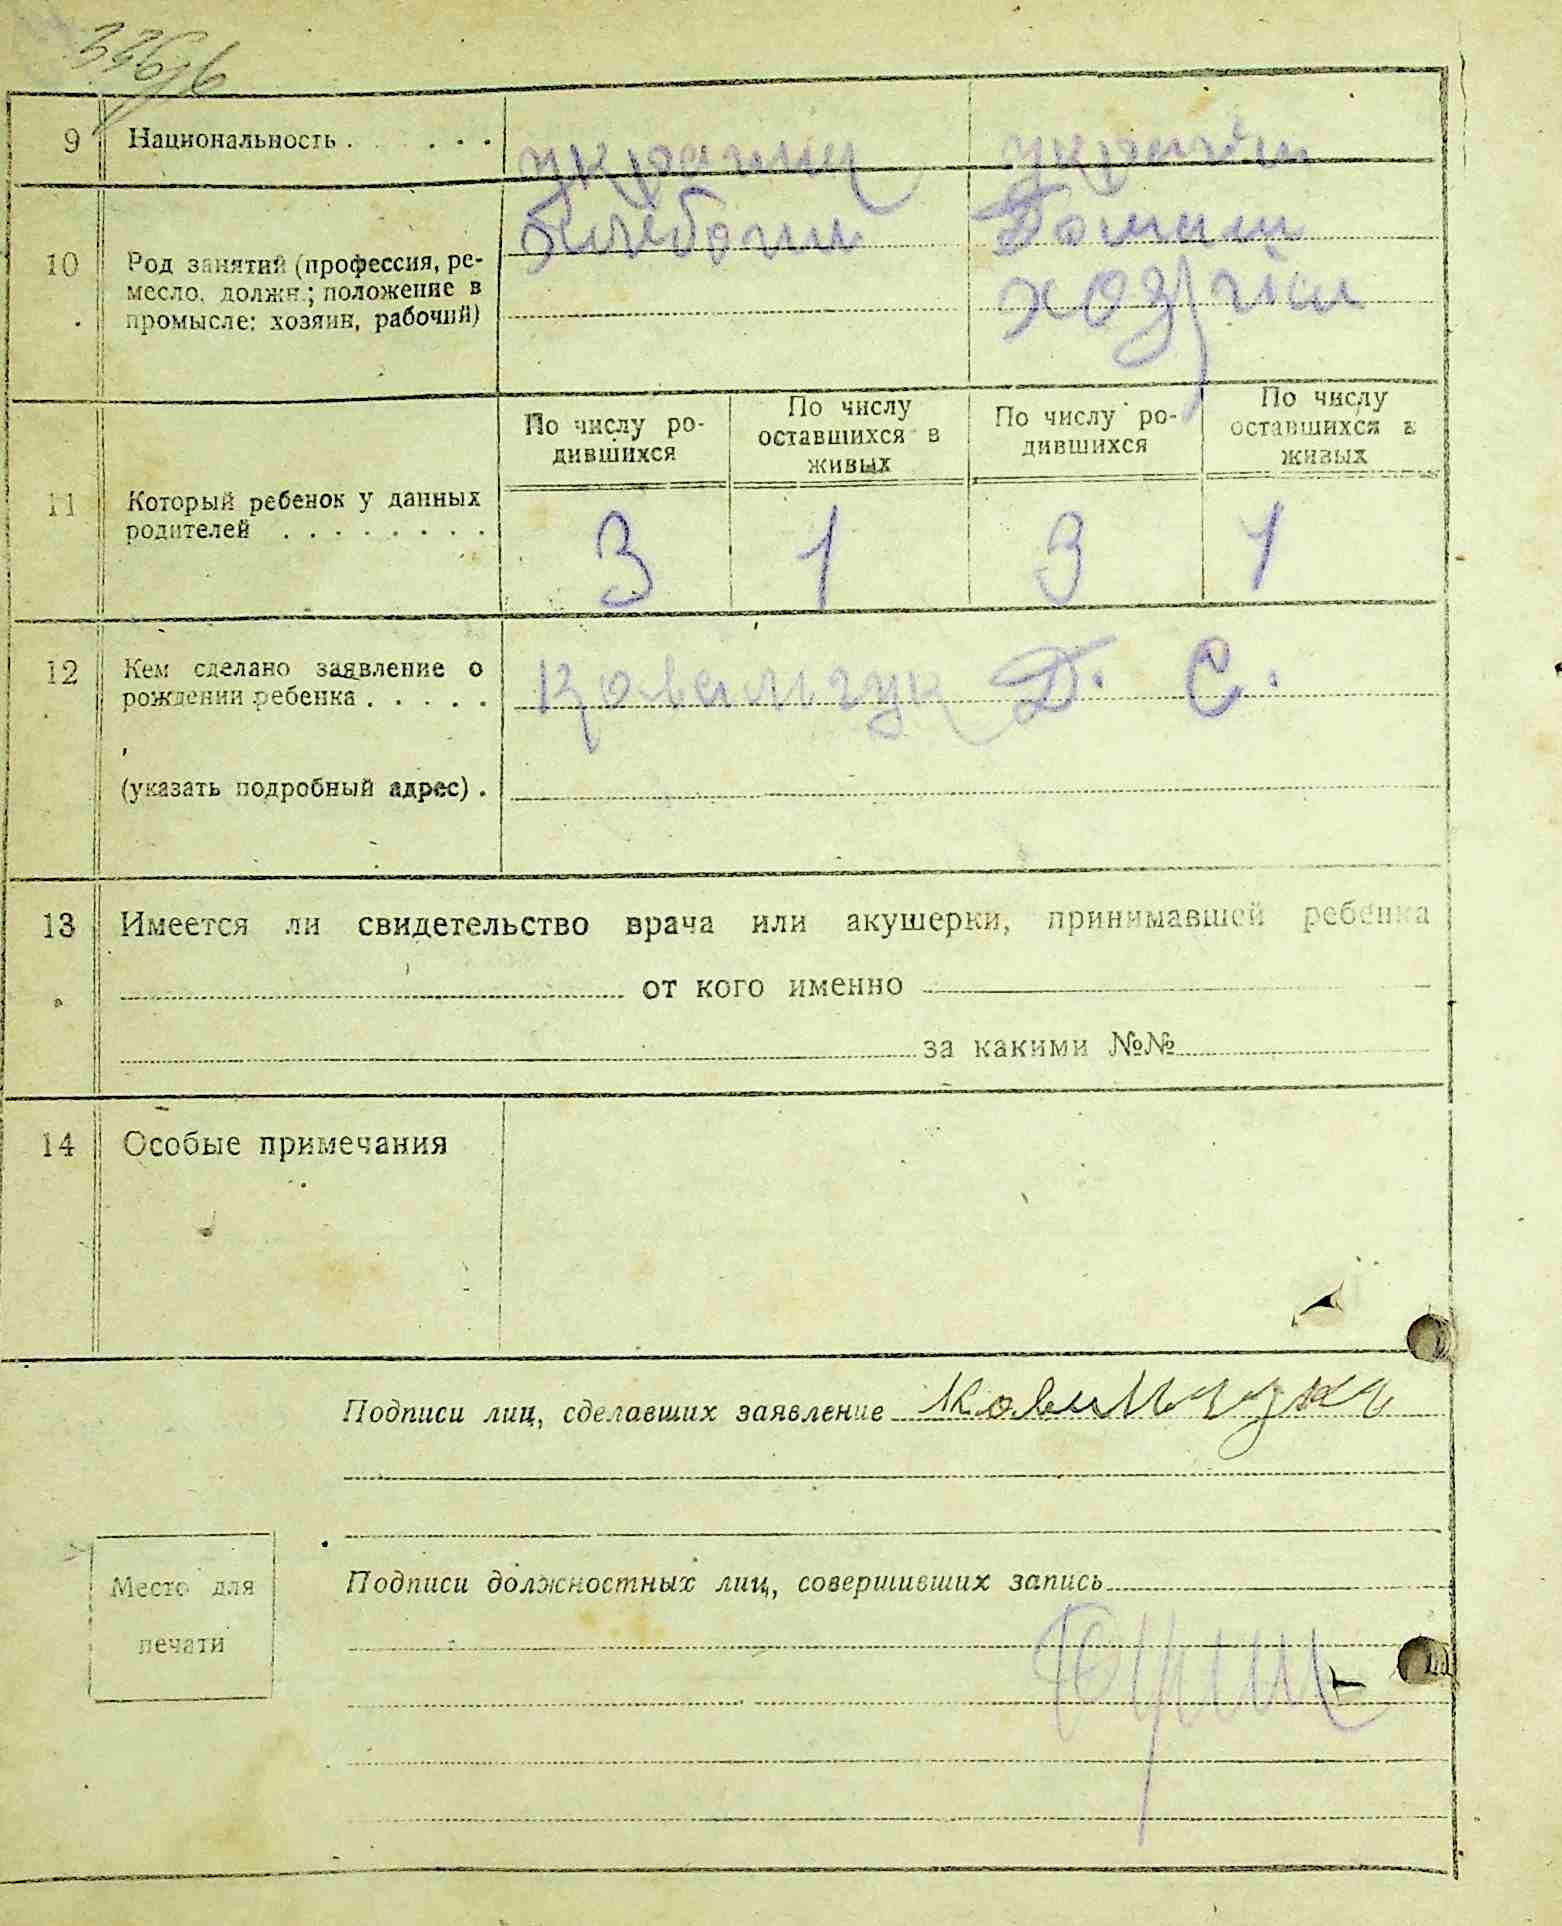 9 Национальность . . . . . . украинц украин
10 Род занятий (профессия, ре-
месло, должн.; положение в
промысле: хозяин, рабочий)
Домаш
хозяй
11 Который ребенок у данных
родителей . . . . . . . .
По числу ро-
дившихся
По числу
оставшихся в
живых
По числу ро-
дившихся
По числу
оставшихся в
живых
3 1 3 1
12 Кем сделано заявление о
рождении ребенка . . . . . Ковальчук Д. С.
(указать подробный адрес) .
13 Имеется ли свидетельство врача или акушерки, принимавшей ребенка
от кого именно
за какими №№
14 Особые примечания
Подписи лиц, сделавших заявление Ковальчукъ
Подписи должностных лиц, совершивших запись
Место для
печати